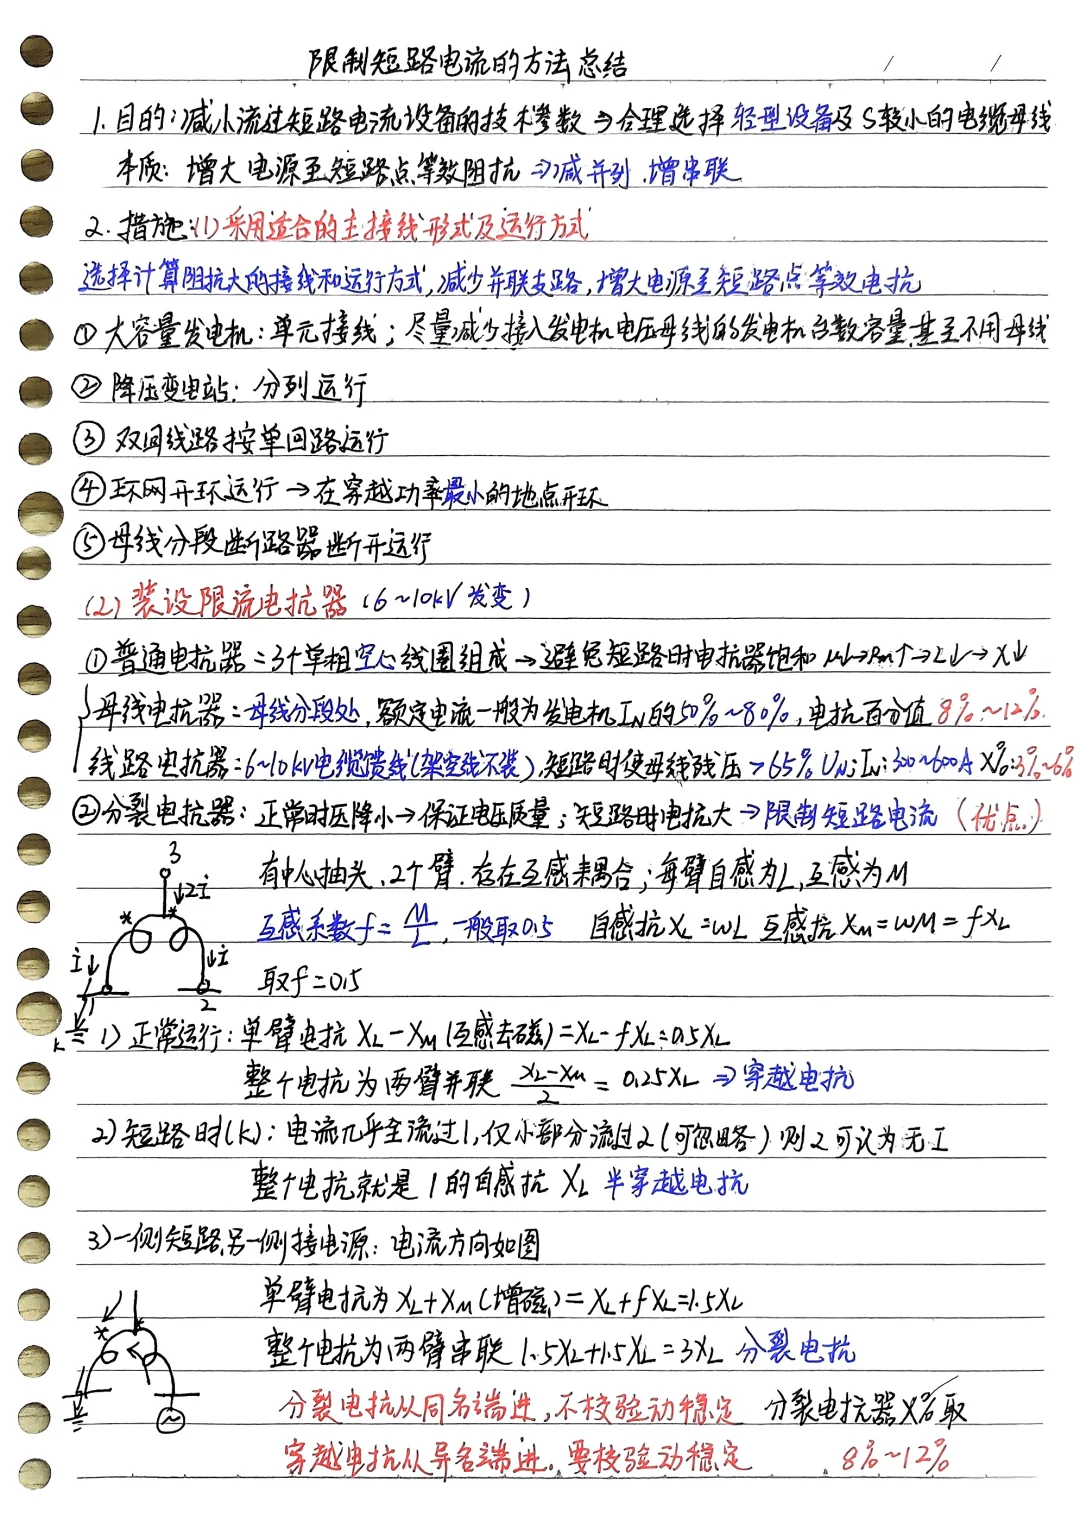 限制短路电流的方法总结
1.目的:减小流过短路电流设备的技术参数⇒合理选择轻型设备及S较小的电缆母线
本质: 增大电源至短路点等效阻抗⇒减并列.增串联
2.措施:(1)采用适合的主接线形式及运行方式
选择计算阻抗大的接线和运行方式,减少并联支路,增大电源至短路点等效电抗
①大容量发电机:单元接线;尽量减少接入发电机电压母线的发电机台数容量,甚至不用母线
②降压变电站:分列运行
③双回线路按单回路运行
④环网开环运行→在穿越功率最小的地点开环
⑤母线分段断路器断开运行
(2)装设限流电抗器(6~10kV发变)
①普通电抗器=3个单相空心线圈组成→避免短路时电抗器饱和 μ↓→Rm↑→L↓→X↓
母线电抗器=母线分段处,额定电流一般为发电机IN的50%~80%,电抗百分值8%~12%.
线路电抗器=6~10kV电缆馈线(架空线不装),短路时使母线残压>65%UN;IN:300~600A X%:3%~6%
②分裂电抗器:正常时压降小→保证电压质量;短路时电抗大→限制短路电流(优点)
3
2i
有中心抽头.2个臂.存在互感耦合;每臂自感为L,互感为M
互感系数f=M/L,一般取0.5 自感抗XL=ωL 互感抗XM=ωM=fXL
i i
取f=0.5
1 2
K
1)正常运行:单臂电抗XL-XM(互感去磁)=XL-fXL=0.5XL
整个电抗为两臂并联 (XL-XM)/2=0.25XL ⇒穿越电抗
2)短路时(K):电流几乎全流过1,仅小部分流过2(可忽略)则2可认为无I
整个电抗就是1的自感抗XL 半穿越电抗
3)一侧短路另一侧接电源:电流方向如图
单臂电抗为XL+XM(增磁)=XL+fXL=1.5XL
整个电抗为两臂串联1.5XL+1.5XL=3XL 分裂电抗
分裂电抗从同名端进,不校验动稳定 分裂电抗器X%取
穿越电抗从异名端进。要校验动稳定 8%~12%